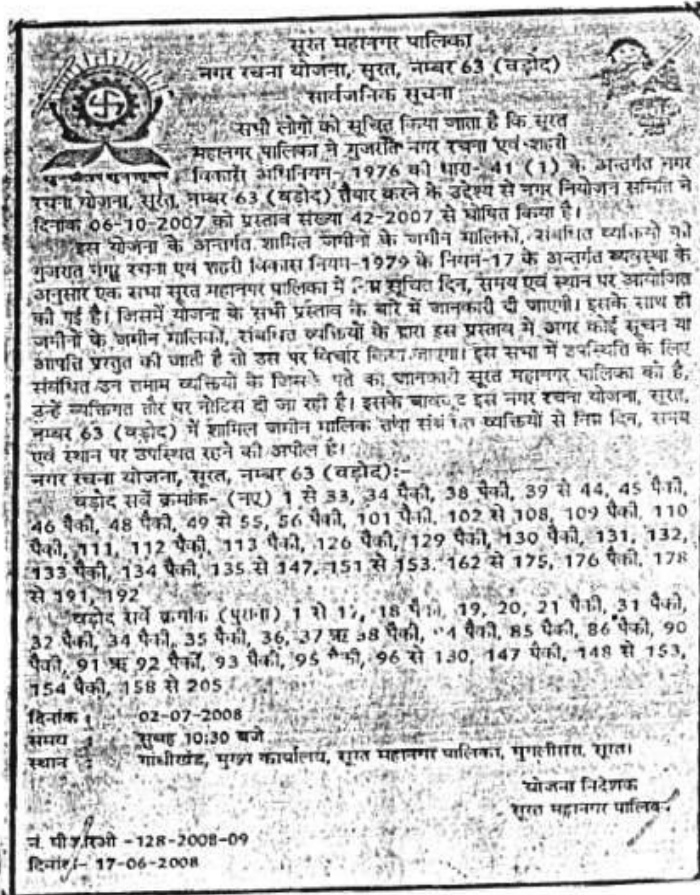 सूरत महानगर पालिका
नगर रचना योजना, सूरत, नम्बर 63 (वड़ोद)
सार्वजनिक सूचना
सभी लोगों को सूचित किया जाता है कि सूरत
महानगर पालिका ने गुजरात नगर रचना एवं शहरी
विकास अधिनियम- 1976 की धारा- 41 (1) के अन्तर्गत नगर
रचना योजना, सूरत, नम्बर 63 (वड़ोद) तैयार करने के उद्देश्य से नगर नियोजन समिति ने
दिनांक 06-10-2007 को प्रस्ताव संख्या 42-2007 से घोषित किया है।
इस योजना के अन्तर्गत शामिल जमीनों के जमीन मालिकों, संबंधित व्यक्तियों को
गुजरात रचना एवं शहरी विकास नियम-1979 के नियम-17 के अन्तर्गत व्यवस्था के
अनुसार एक सभा सूरत महानगर पालिका में सूचित दिन, समय एवं स्थान पर आयोजित
की गई है। जिसमें योजना के सभी प्रस्ताव के बारे में जानकारी दी जाएगी। इसके साथ ही
जमीनों के जमीन मालिकों, संबंधित व्यक्तियों के द्वारा इस प्रस्ताव में अगर कोई सूचन या
आपत्ति प्रस्तुत की जाती है तो उस पर विचार किया जाएगा। इस सभा में उपस्थिति के लिए
संबंधित उन तमाम व्यक्तियों के पते की जानकारी सूरत महानगर पालिका को है,
उन्हें व्यक्तिगत तौर पर नोटिस दी जा रही है। इसके बावजूद इस नगर रचना योजना, सूरत,
नम्बर 63 (वड़ोद) में शामिल जमीन मालिक तथा संबंधित व्यक्तियों से निम्न दिन, समय
एवं स्थान पर उपस्थित रहने की अपील है।
नगर रचना योजना, सूरत, नम्बर 63 (वड़ोद):-
वड़ोद सर्वे क्रमांक- (नए) 1 से 33, 34 पैकी, 38 पैकी, 39 से 44, 45 पैकी,
46 पैकी, 48 पैकी, 49 से 55, 56 पैकी, 101 पैकी, 102 से 108, 109 पैकी, 110
पैकी, 111, 112 पैकी, 113 पैकी, 126 पैकी, 129 पैकी, 130 पैकी, 131, 132,
133 पैकी, 134 पैकी, 135 से 147, 151 से 153, 162 से 175, 176 पैकी, 178
से 191, 192
वड़ोद सर्वे क्रमांक (पुराना) 1 से 18 पैकी, 19, 20, 21 पैकी, 31 पैकी,
32 पैकी, 34 पैकी, 35 पैकी, 36, 37 38 पैकी, पैकी, 85 पैकी, 86 पैकी, 90
पैकी, 91 92 पैकी, 93 पैकी, 95 पैकी, 96 से 130, 147 पैकी, 148 से 153,
154 पैकी, 158 से 205
दिनांक : 02-07-2008
समय : सुबह 10:30 बजे
स्थान : गांधीखंड, मुख्य कार्यालय, सूरत महानगर पालिका, मुगलीसरा, सूरत।
योजना निदेशक
सूरत महानगर पालिका
नं. -128-2008-09
दिनांक- 17-06-2008